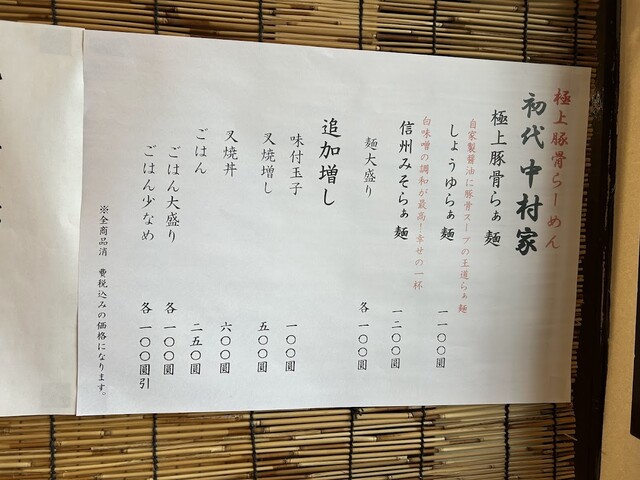 極上豚骨らーめん
初代中村家
極上豚骨らぁ麺
自家製醤油に豚骨スープの王道らぁ麺
しょうゆらぁ麺 一一〇〇圓
白味噌の調和が最高!幸せの一杯
信州みそらぁ麺 一二〇〇圓
麺大盛り 各一〇〇圓
追加増し
味付玉子 一〇〇圓
叉焼増し 五〇〇圓
叉焼丼 六〇〇圓
ごはん 二五〇圓
ごはん大盛り 各一〇〇圓
ごはん少なめ 各一〇〇圓引
※全商品消 費税込みの価格になります。